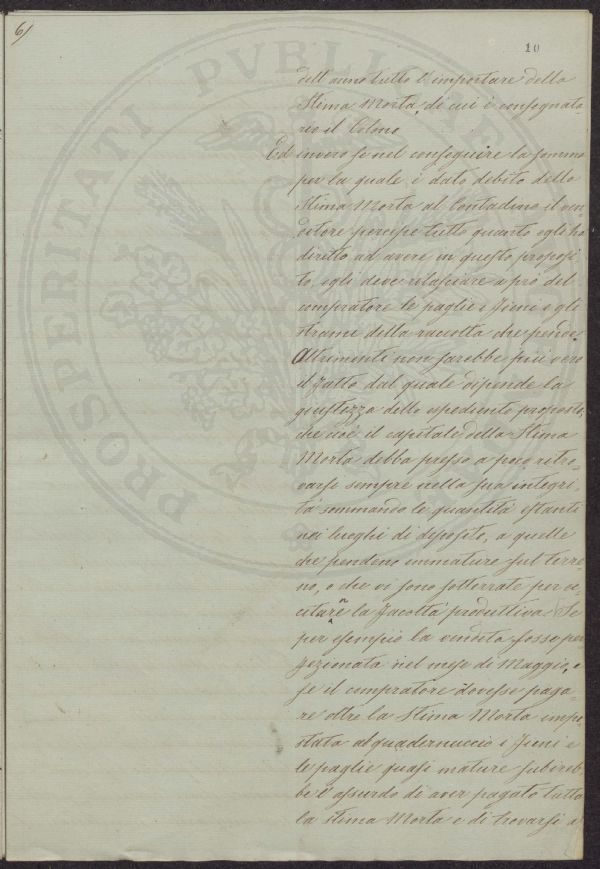 6/
10
dell'anno tutto l'importare della
Stima Morta, di cui è consegnata-
rio il Colono
Ed invero se nel conseguire la somma
per la quale è dato debito della
Stima Morta al Contadino il ven-
ditore percepe tutto quanto egli ha
diretto ad avere in questo proposi
to, egli deve rilasciare a pro del
compratore le paglie i fieni e gli
strami della raccolta che pende.
Altrimenti non sarebbe più vero
il fatto dal quale dipende la
giustezza dello espediente proposto,
che cioè il capitale della Stima
Morta debba presso a poco ritro-
varsi sempre nella sua integri
tà sommando le quantità estanti
nei luoghi di deposito, a quelle
che pendono immature sul terre-
no, o che vi sono sotterrate per ec-
citare la facoltà produttiva. Se
per esempio la vendita fosse per
fezionata nel mese di Maggio, e
se il compratore dovesse paga-
re oltre la Stima Morta impo
stata al quadernuccio i fieni e
le paglie quasi mature subireb-
be l'assurdo di aver pagato tutta
la stima Morta e di trovarsi a
PROSPERITATI PVBLICAE